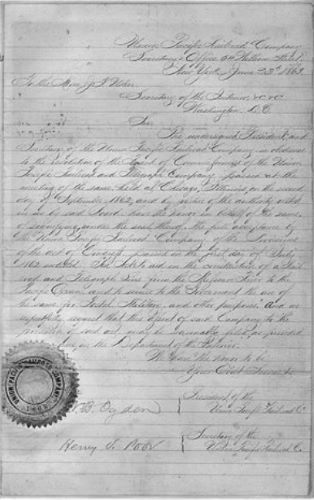 Union Pacific Railroad Company
Secretary's Office 54 William Street
New York June 23rd 1863
To the Hon. J. P. Usher
Secretary of the Interior, &c &c
Washington, D.C.
Sir
The undersigned President and
Secretary of the Union Pacific Railroad Company in obedience
to the resolution of the Board of Commissioners of the Union
Pacific Railroad and Telegraph Company, passed at the
meeting of the same held at Chicago, Illinois, on the second
day of September 1862, and by virtue of the authority vested
in us by said Board have the honor in behalf of the same,
of signifying, under the seal thereof, the full acceptance by
the Union Pacific Railroad Company of the provisions
of the act of Congress passed on the first day of July
1862 entitled An Act to aid in the construction of a Rail
road and Telegraph Line from the Missouri River to the
Pacific Ocean, and to secure to the Government the use of
the same for Postal, Military, and other purposes and we
respectfully request that this deed of said Company to the
provisions of said act may be filed as provided
in the Department of the Interior.
We have the honor to be
Your Obdt Servants
B. Ogden
President of the
Union Pacific Railroad Co.
Henry V. Poor
Secretary of the
Union Pacific Railroad Co.
UNION PACIFIC RAILROAD COMPANY